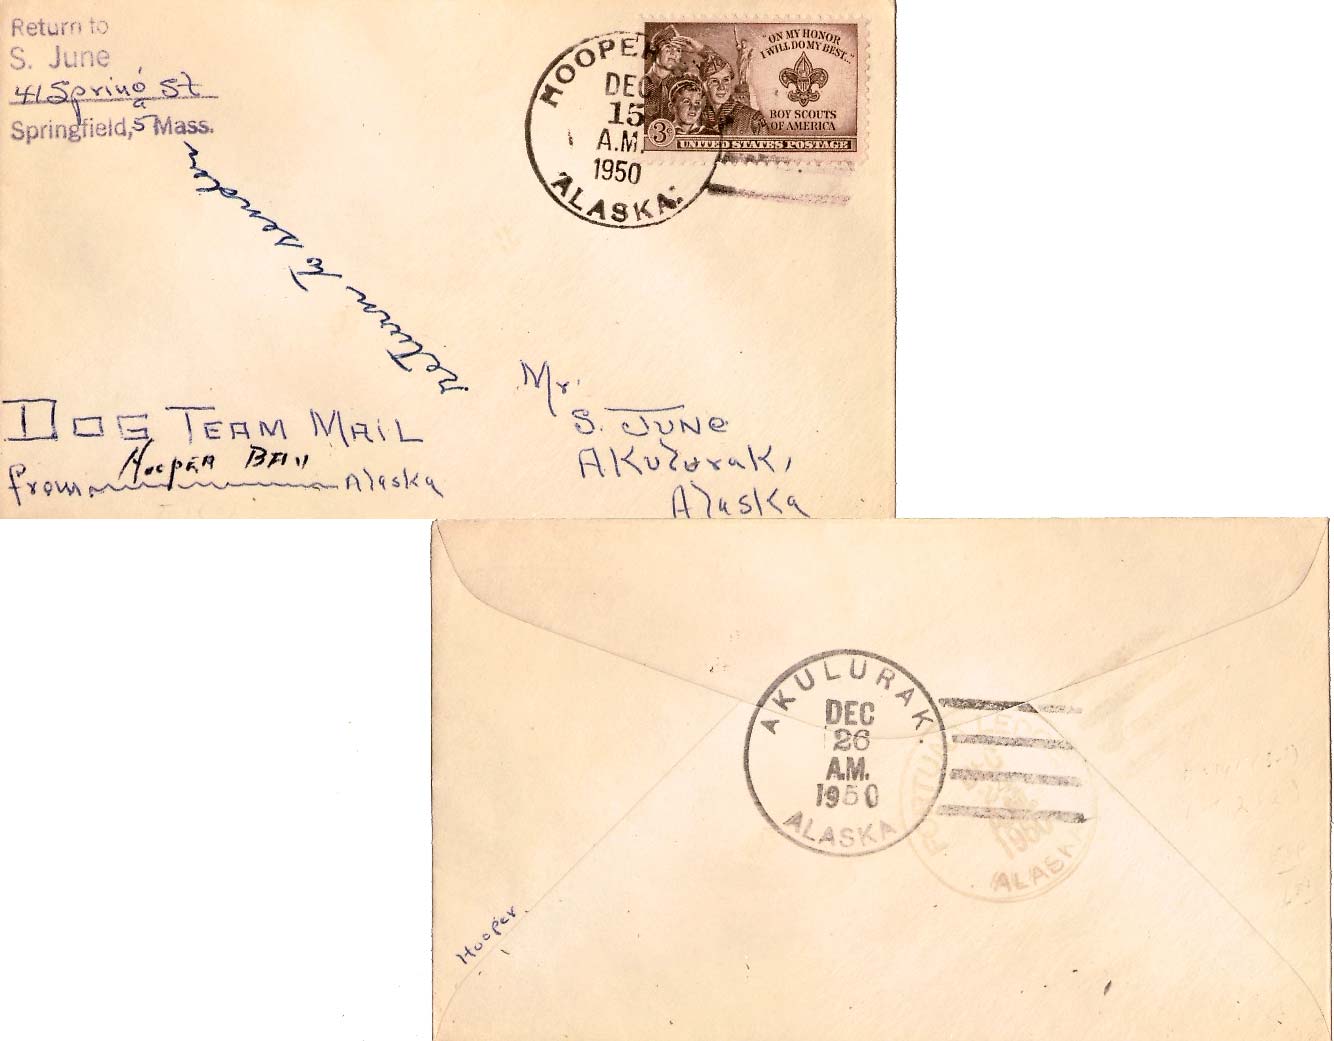 Return to
S. June
41 Spring St
Springfield, 5 Mass.
HOOPER
DEC
15
A.M.
1950
ALASKA.
"ON MY HONOR
I WILL DO MY BEST..."
BOY SCOUTS
OF AMERICA
3¢
UNITED STATES POSTAGE
return to sender
Mr.
S. JUNe
AKulurak,
Alaska
DOG TEAM MAIL
Hooper BAy
from Alaska
AKULURAK.
DEC
26
A.M.
1950
ALASKA
1950
ALASKA
Hooper